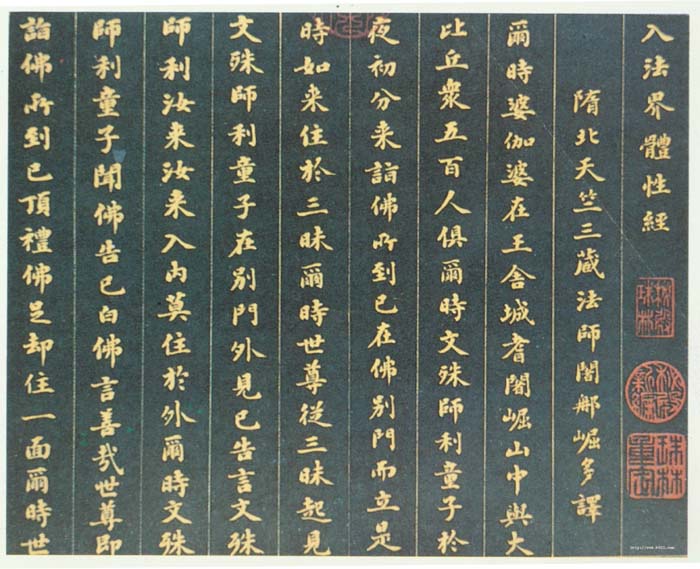 入法界體性經
隋北天竺三藏法師闍那崛多譯
爾時婆伽婆在王舍城耆闍崛山中與大
比丘衆五百人俱爾時文殊師利童子於
夜初分来詣佛所到已在佛別門而立是
時如来住於三昧爾時世尊從三昧起見
文殊師利童子在別門外見已告言文殊
師利汝来汝来入內莫住於外爾時文殊
師利童子聞佛告已白佛言善哉世尊即
詣佛所到已頂禮佛足却住一面爾時世